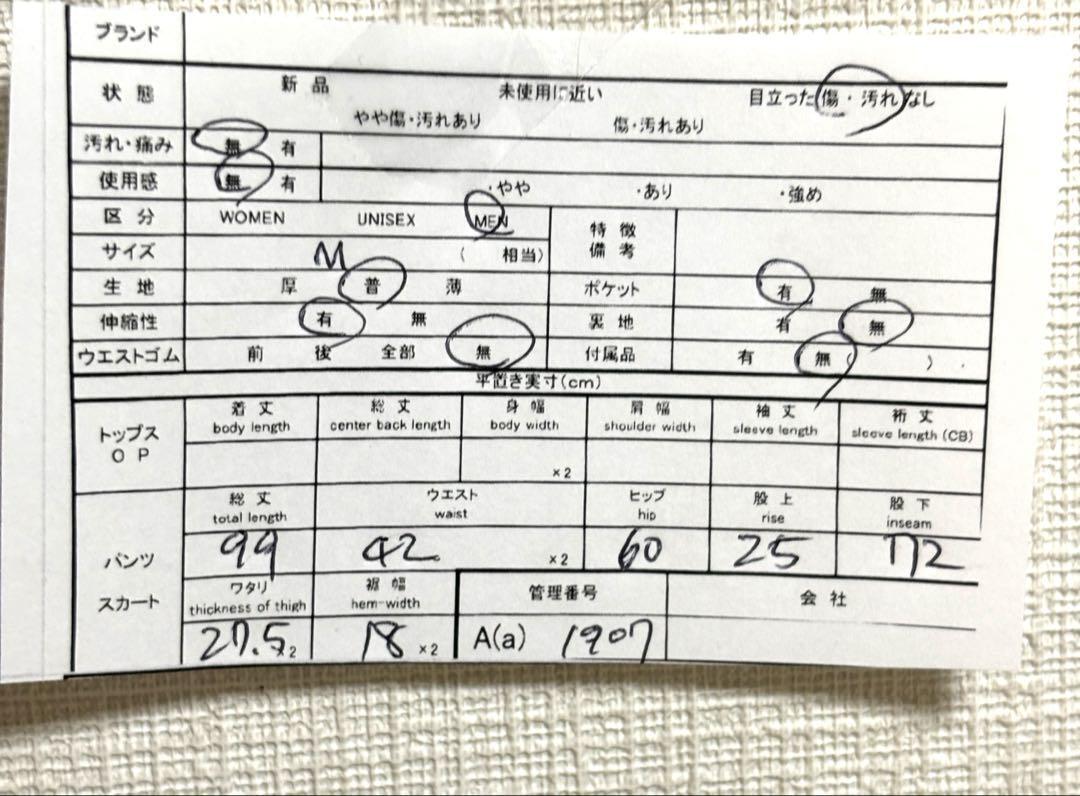 ブランド
状態 新品 未使用に近い 目立った傷・汚れなし
やや傷・汚れあり 傷・汚れあり
汚れ・痛み 無 有
使用感 無 有 ・やや ・あり ・強め
区分 WOMEN UNISEX MEN 特徴
備考
サイズ M ( 相当)
生地 厚 普 薄 ポケット 有 無
伸縮性 有 無 裏地 有 無
ウエストゴム 前 後 全部 無 付属品 有 無 ( )
平置き実寸(cm)
トップス
OP
着丈 総丈 身幅 肩幅 袖丈 裄丈
body length center back length body width shoulder width sleeve length sleeve length (CB)
×2
パンツ
スカート
総丈 ウエスト ヒップ 股上 股下
total length waist hip rise inseam
99 42 ×2 60 25 72
ワタリ 裾幅 管理番号 会社
thickness of thigh hem-width
27.5 ×2 18 ×2 A(a) 1907